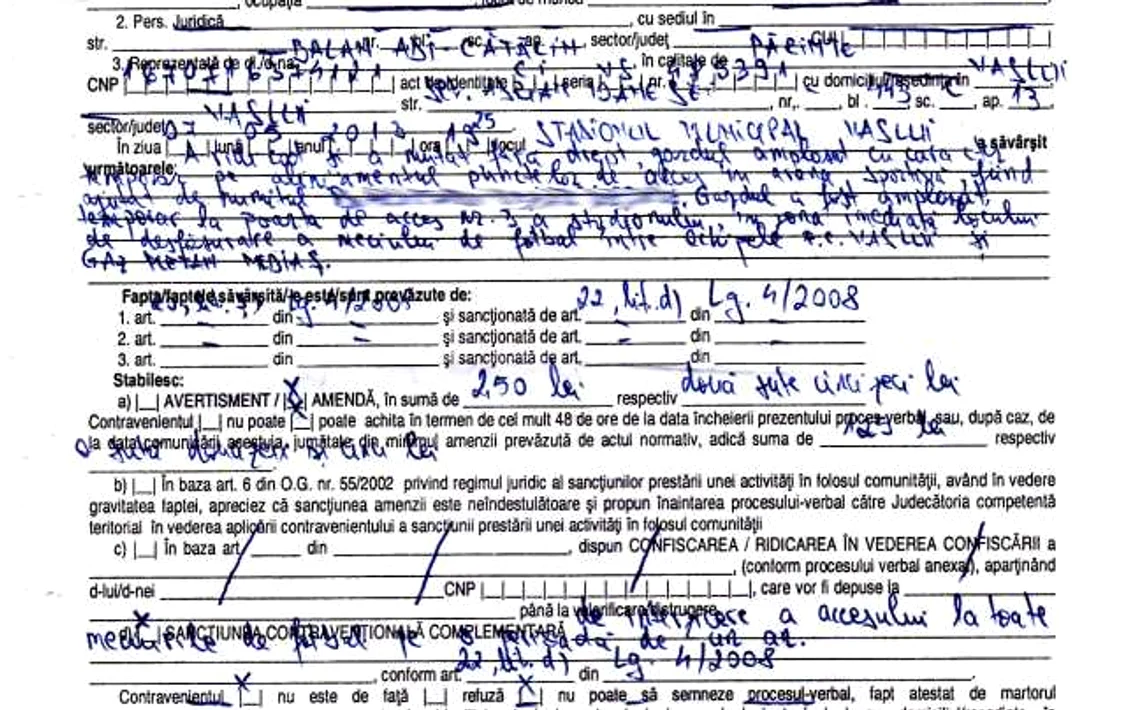 2. Pers. Juridică , cu sediul în
str. nr. sc. ap. sector/judeţ CUI
BALAN ADI - CĂTĂLIN
3. Reprezentată de dl./d-na în calitate de
CNP act de identitate seria VS nr. cu domiciliu/reşedinţa în VASLUI
str. , nr. , bl. sc. C ap. 13
VASLUI
sector/judeţ
07 05 2013 19 25 STADIONUL MUNICIPAL VASLUI
În ziua luna anul ora locul a săvârşit
următoarele:
A ridicat şi a mutat fără drept, gardul amplasat cu
temporar pe aliniamentul punctelor de acces în arena sportivă fiind
ajutat de numitul . Gardul a fost amplasat
temporar la poarta de acces nr. 3 a stadionului, în zona imediată locului
de desfăşurare a meciului de fotbal între echipele F.C. VASLUI şi
GAZ METAN MEDIAŞ.
Fapta/faptele săvârşită/e este/sunt prevăzute de:
1. art. din Lg. 4/2008 şi sancţionată de art. 22, lit. d) din Lg. 4/2008
2. art. – din – şi sancţionată de art. – din –
3. art. din şi sancţionată de art. din
Stabilesc:
a) |_| AVERTISMENT / |X| AMENDĂ, în sumă de 250 lei respectiv două sute cinci zeci lei
Contravenientul |_| nu poate |_| poate achita în termen de cel mult 48 de ore de la data încheierii prezentului proces-verbal sau, după caz, de
la data comunicării acestuia, jumătate din minimul amenzii prevăzută de actul normativ, adică suma de 125 lei respectiv
o sută douăzeci şi cinci lei
b) |_| În baza art. 6 din O.G. nr. 55/2002 privind regimul juridic al sancţiunilor prestării unei activităţi în folosul comunităţii, având în vedere
gravitatea faptei, apreciez că sancţiunea amenzii este neîndestulătoare şi propun înaintarea procesului-verbal către Judecătoria competentă
teritorial în vederea aplicării contravenientului a sancţiunii prestării unei activităţi în folosul comunităţii
c) |_| În baza art. din , dispun CONFISCAREA / RIDICAREA ÎN VEDEREA CONFISCĂRII a
, (conform procesului verbal anexat), aparţinând
d-lui/d-nei CNP , care vor fi depuse la
până la valorificare/distrugere
SANCŢIUNEA CONTRAVENŢIONALĂ COMPLEMENTARĂ de interzicere a accesului la toate
meciurile de fotbal pe o perioadă de un an.
, conform art. 22, lit. d) din Lg. 4/2008
Contravenientul |X| nu este de faţă |_| refuză |X| nu poate să semneze procesul-verbal, fapt atestat de martorul